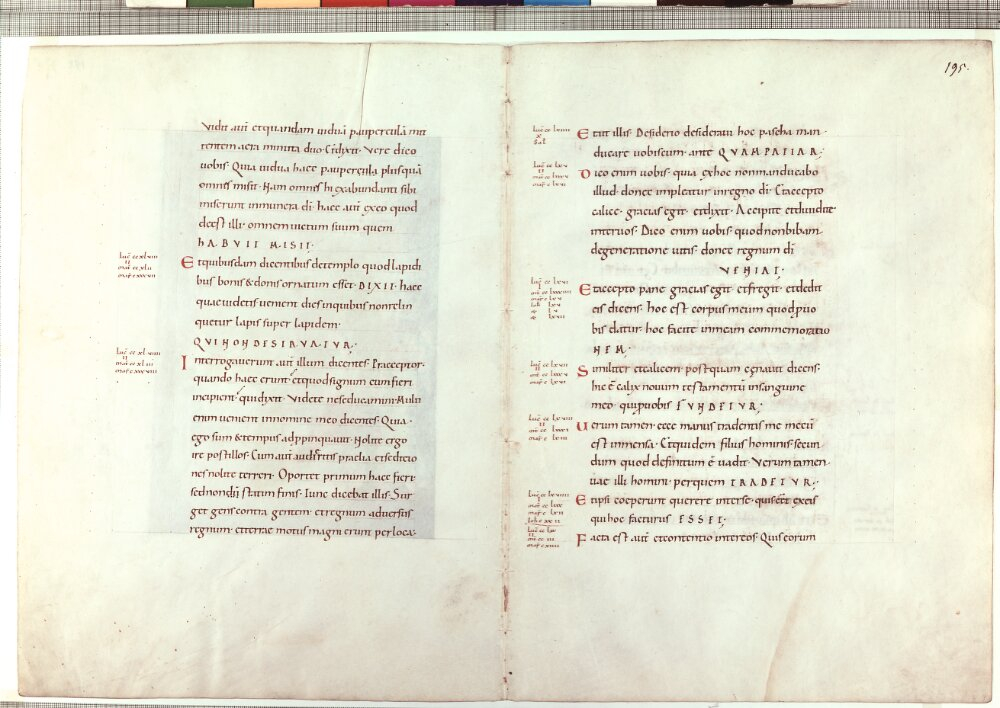 Vidit autē et quandam viduā pauperculā mit
tentem aera minuta duo· Et dixit· Vere dico
vobis· Quia vidua haec paupercula plus quā
omnes misit· Nam omnes hi ex abundanti sibi
miserunt in munera dī· haec autē ex eo quod
deest illi· omnem victum suum quem
HABUIT MISIT·
Et quibusdam dicentibus de templo quod lapidi
bus bonis & donis ornatum esset· DIXIT· haec
quae videtis venient dies in quibus non relin
quetur lapis super lapidem·
QUI NON DESTRUATUR·
Interrogaverunt autē illum dicentes· Praeceptor·
quando haec erunt et quod signum cum fieri
incipient· qui dixit· Videte ne seducamini· Multi
enim venient in nomine meo dicentes· Quia·
ego sum & tempus adppinquavit· Nolite ergo
ire post illos· Cum autē audieritis praelia et seditio
nes nolite terreri· Oportet primum haec fieri·
sed non dū statim finis· Tunc dicebat illis· Sur
get gens contra gentem· et regnum adversus
regnum· et terrae motus magni erunt per loca·
195·
Et ait illis· Desiderio desideravi hoc pascha man
ducare vobiscum· ante QUAM PATIAR·
Dico enim vobis· quia ex hoc non manducabo
illud· donec impleatur in regno dī· Et accepto
calice· gracias egit· et dixit· Accipite et dividite
inter vos· Dico enim vobis· quod non bibam·
de generatione vitis· donec regnum dī
VENIAT·
Et accepto pane gracias egit· et fregit· et dedit
eis dicens· hoc est corpus meum quod p vo
bis datur· hoc facite in meam commemoratio
NEM·
Similiter et calicem postquam cenavit dicens·
hic ē calix novum testamentū in sanguine
meo· qui p vobis FUNDETUR·
Verum tamen· ecce manus tradentis me mecū
est in mensa· Et quidem filius hominis secun
dum quod definitum ē vadit· Verum tamen
vae illi homini· per quem TRADETUR·
Et ipsi coeperunt querere inter se· quis eēt ex eis
qui hoc facturus ESSET·
Facta est autē et contentio inter eos· Quis eorum